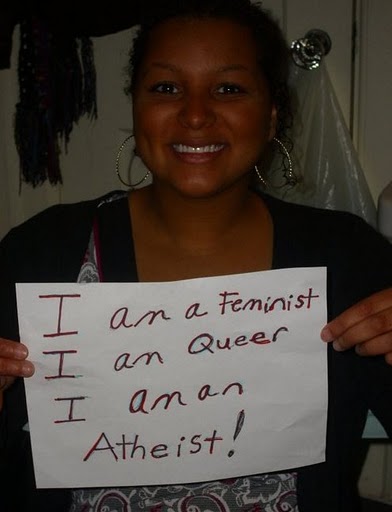 I am a Feminist
I am Queer
I am an
Atheist!